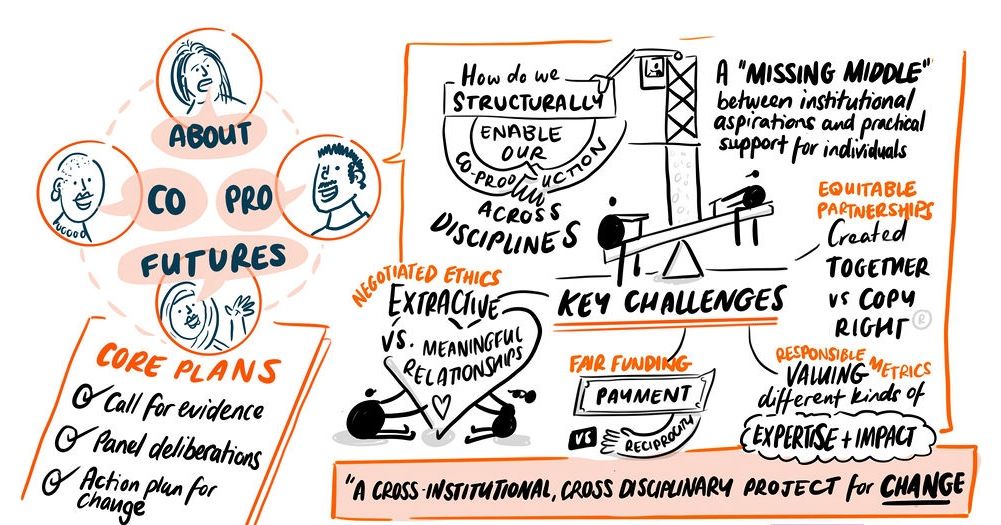 ABOUT
CO PRO
FUTURES
CORE PLANS
Call for evidence
Panel deliberations
Action plan for
change
How do we
STRUCTURALLY
ENABLE
OUR
CO-PRODUCTION
ACROSS
DISCIPLINES
A "MISSING MIDDLE"
between institutional
aspirations and practical
support for individuals
EQUITABLE
PARTNERSHIPS
Created
TOGETHER
vs COPY
RIGHT ®
NEGOTIATED ETHICS
EXTRACTIVE
VS. MEANINGFUL
RELATIONSHIPS
KEY CHALLENGES
FAIR FUNDING
PAYMENT
VS RECIPROCITY
RESPONSIBLE METRICS
VALUING
different kinds of
EXPERTISE + IMPACT
"A CROSS-INSTITUTIONAL, CROSS DISCIPLINARY PROJECT for CHANGE